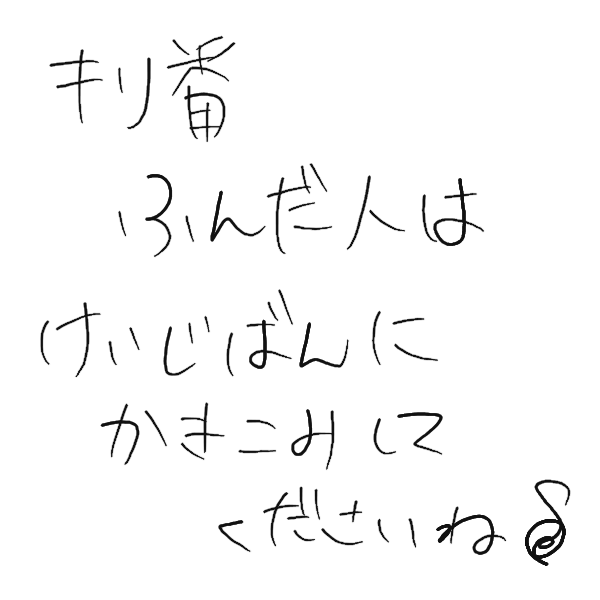 キリ番
ふんだ人は
けいじばんに
かきこみして
くださいね